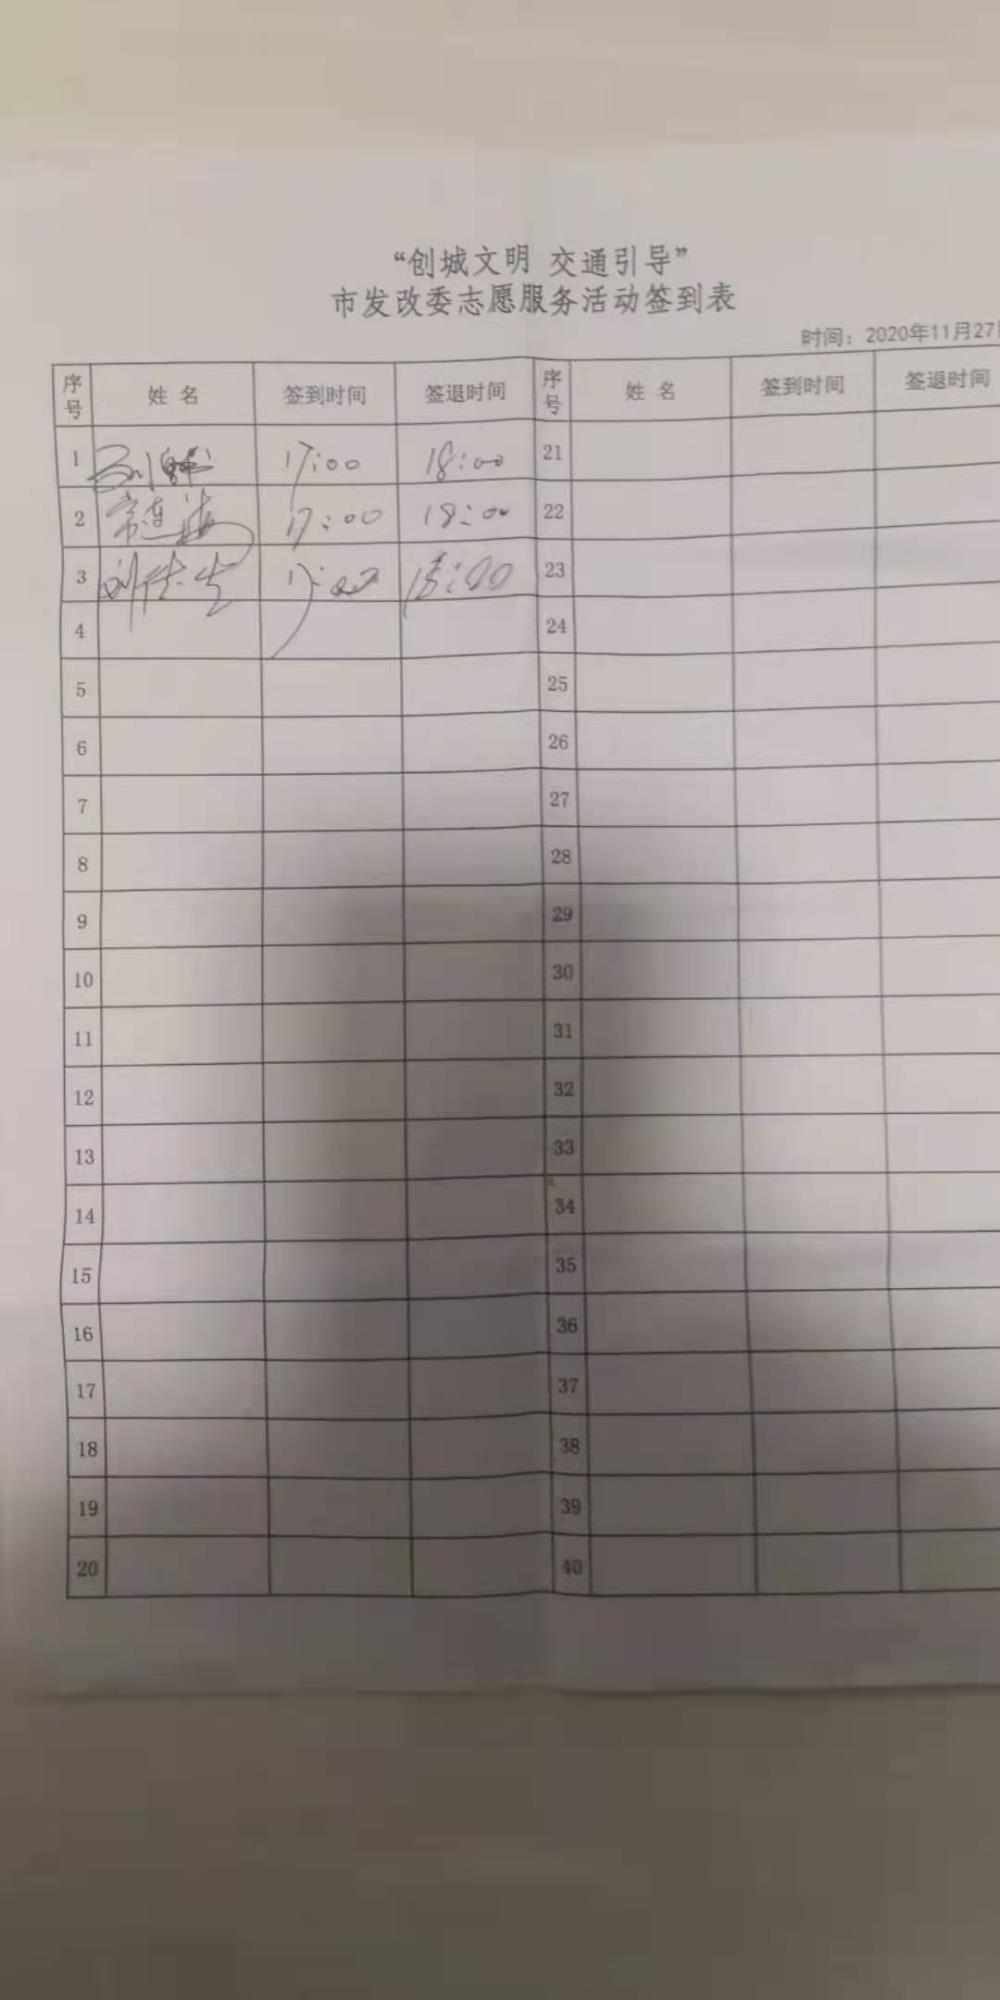 “创城文明 交通引导”
市发改委志愿服务活动签到表
时间：2020年11月27日
序号 姓 名 签到时间 签退时间 序号 姓 名 签到时间 签退时间
1 17:00 18:00 21
2 17:00 18:00 22
3 17:00 18:00 23
4 24
5 25
6 26
7 27
8 28
9 29
10 30
11 31
12 32
13 33
14 34
15 35
16 36
17 37
18 38
19 39
20 40